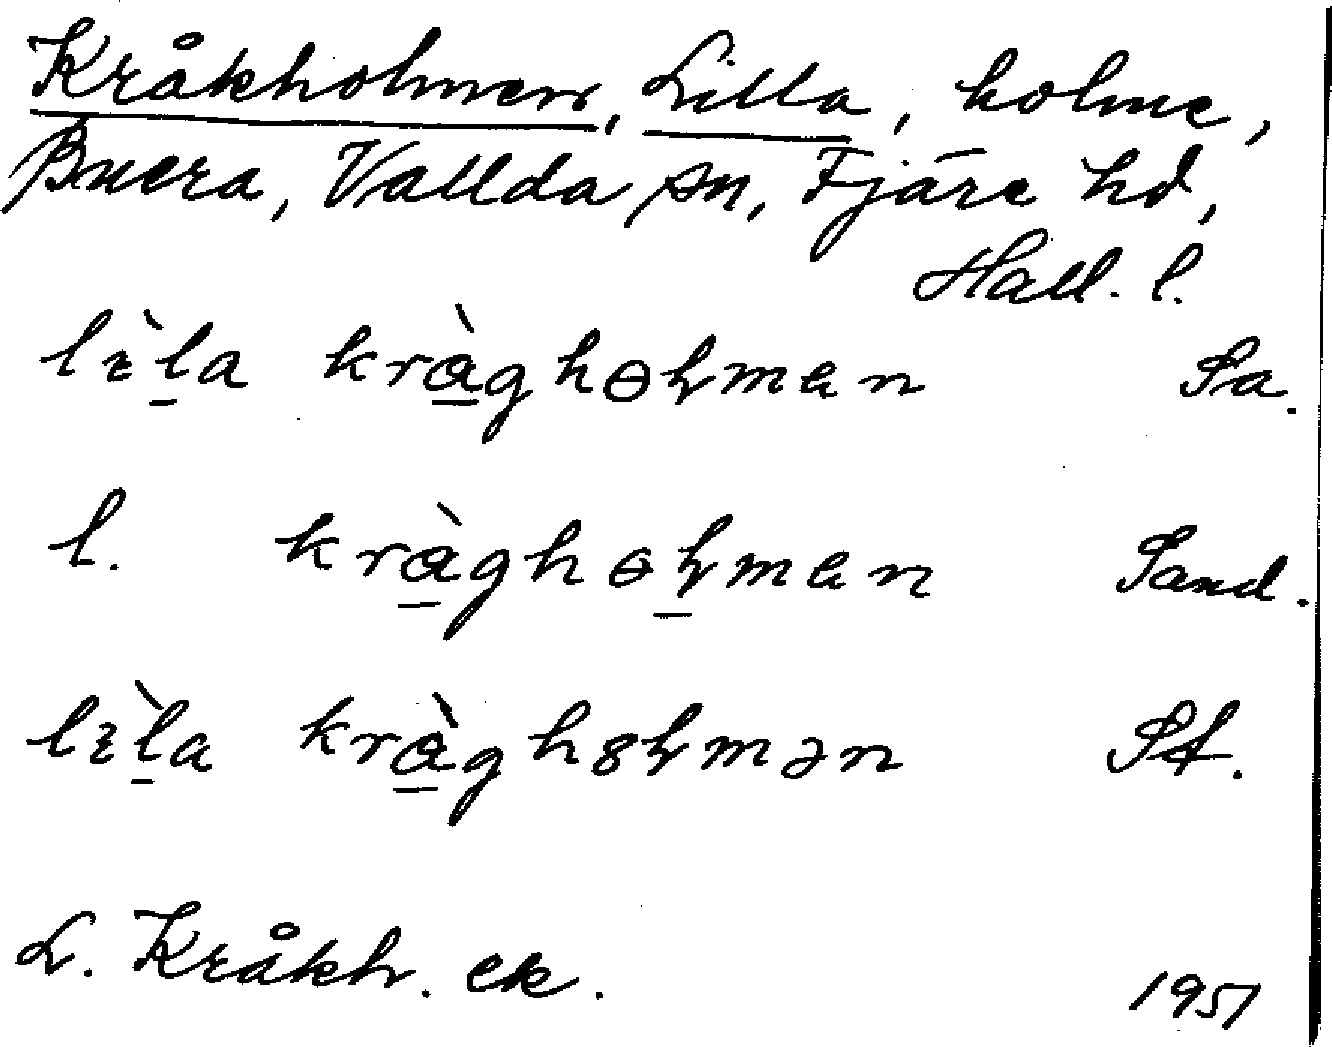 Kråkholmen, Lilla, holme,
Buera, Vallda sn, Fjäre hd,
Hall. l.
lìla kràghɵɫman Sa.
l. kràghɵɫman Sand.
lìla kràgh8ɫmən St.
L. Kråkh. ek.
1951